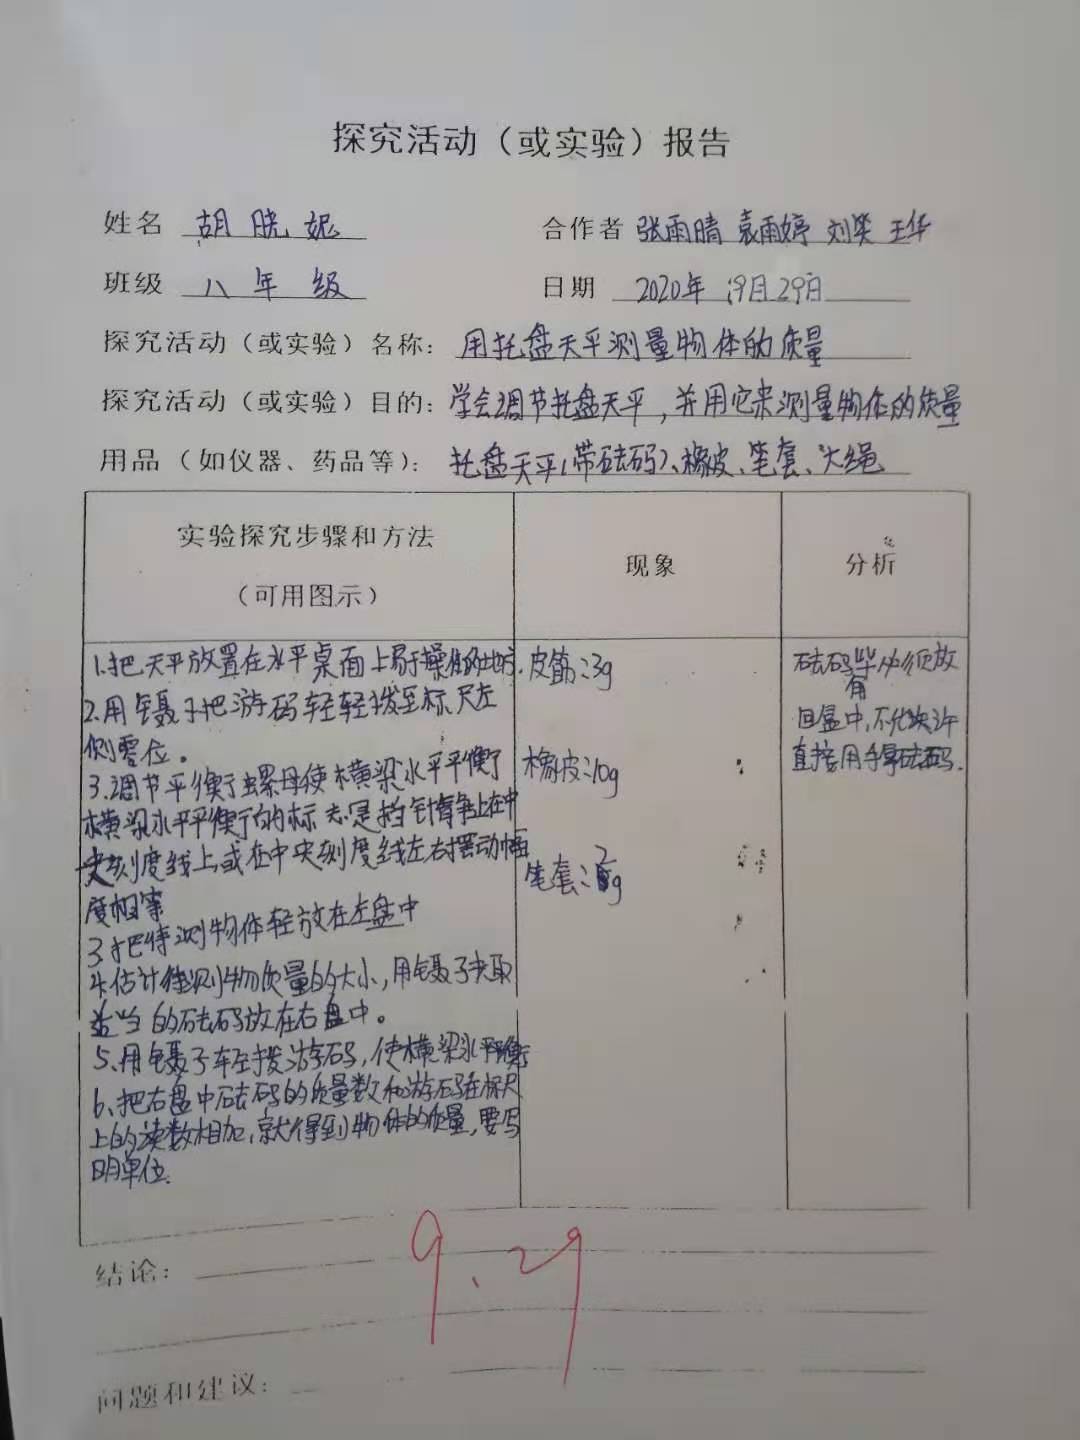 探究活动（或实验）报告
姓名 胡晄妮 合作者 张雨晴 袁雨婷 刘笑 王华
班级 八年级 日期 2020年9月29日
探究活动（或实验）名称：用托盘天平测量物体的质量
探究活动（或实验）目的：学会调节托盘天平，并用它来测量物体的质量
用品（如仪器、药品等）：托盘天平（带砝码）、橡皮、笔套、头绳
实验探究步骤和方法
（可用图示）
现象
分析
1.把天平放置在水平桌面上易于操作的地方.
2.用镊子把游码轻轻拨至标尺左
侧零位。
3.调节平衡螺母使横梁水平平衡
横梁水平平衡的标志是指针静止在中
央刻度线上或在中央刻度线左右摆动幅
度相等
3.把待测物体轻放在左盘中
4.估计待测物质量的大小，用镊子夹取
适当的砝码放在右盘中。
5、用镊子轻拨游码，使横梁水平平衡
6、把右盘中砝码的质量数和游码在标尺
上的读数相加，就得到物体的质量，要写
明单位.
皮筋：3g
橡皮：10g
笔套：2g
砝码必须放
回盒中，不允许
直接用手拿砝码.
结论：
9.29
问题和建议：